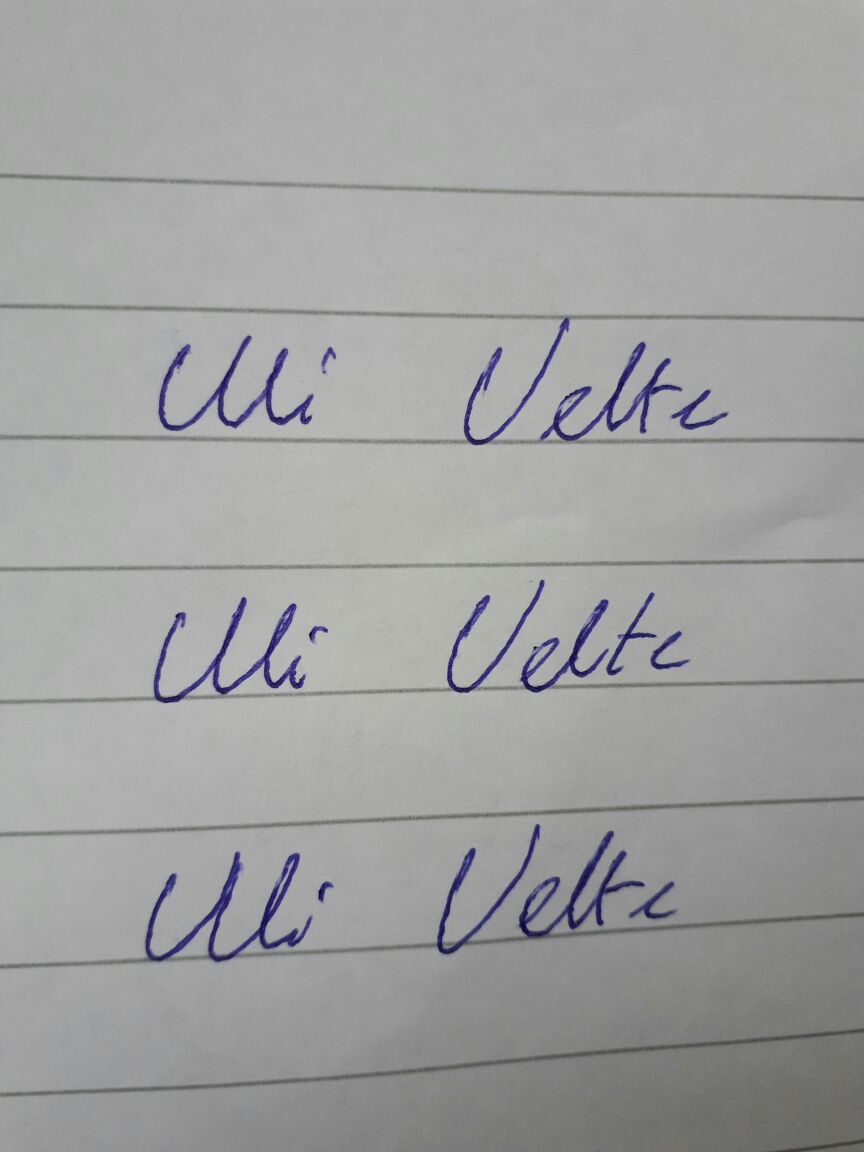 Uli Velte
Uli Velte
Uli Velte